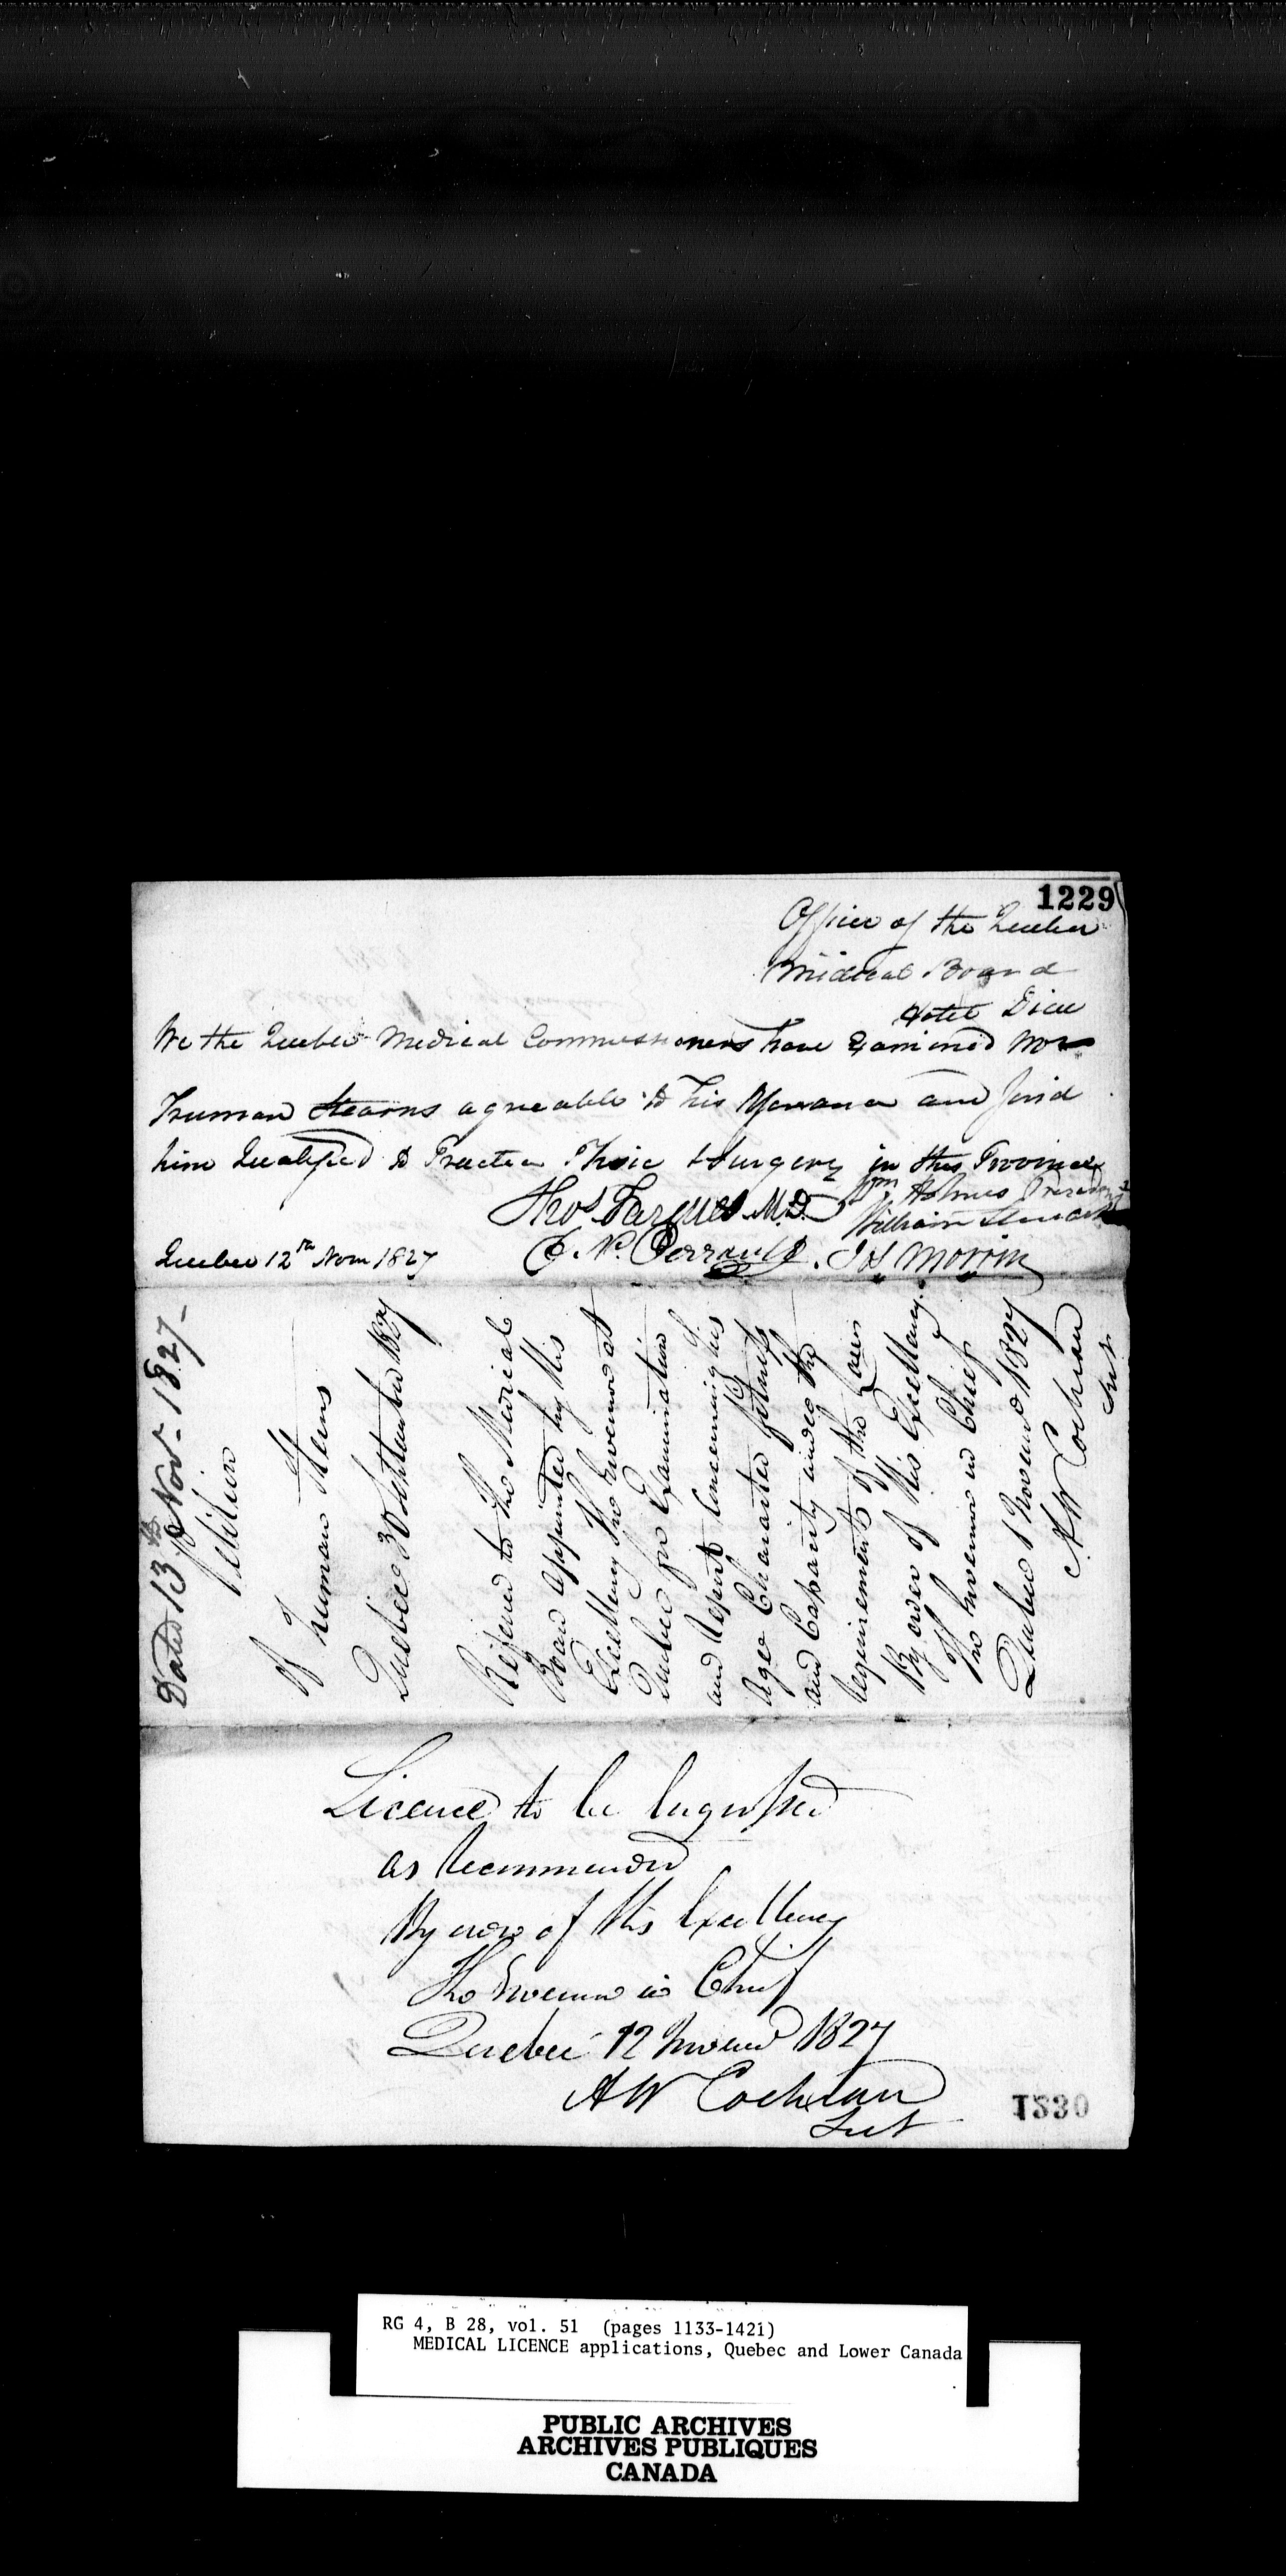 1229
Office of the Quebec
Medical Board
Hotel Dieu
We the Quebec Medical Commissioners have Examined
Truman Stearns agreable to his and find
him Qualified to Practice Phsic & Surgery in this Province
Wm Holmes President
Thos Fargues M.D. William
Quebec 12th Novr 1827 C. N. Perrault. Jos Morrin
Dated 13th Novr 1827-
Petition
of
Truman Sterns
Quebec 30 1827
Referred to the Medical
Board appointed by His
Excellency the Governor at
Quebec for Examination
and Report Concerning his
Age Character fitness
and Capacity under the
requirements of the Law
By order of His Excellency.
The Governor in Chief
Quebec 1827
A W Cochran
Sect
Licence to be Engrossed
as recommended
By order of His Excellency
The Governor in Chief
Quebec 12 1827
A W Cochran
Sect
1230
RG 4, B 28, vol. 51 (pages 1133-1421)
MEDICAL LICENCE applications, Quebec and Lower Canada
PUBLIC ARCHIVES
ARCHIVES PUBLIQUES
CANADA